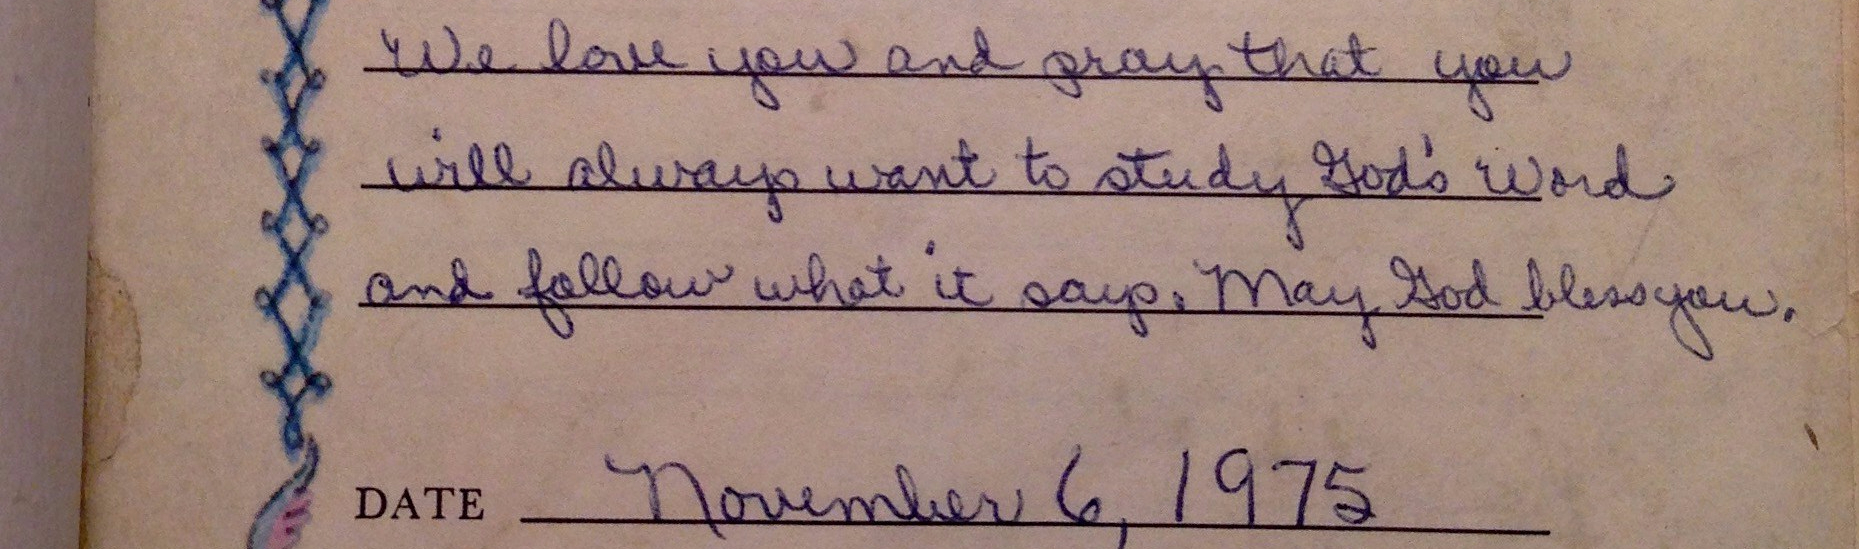 We love you and pray that you
will always want to study God's Word
and follow what it says. May God bless you.
DATE November 6, 1975